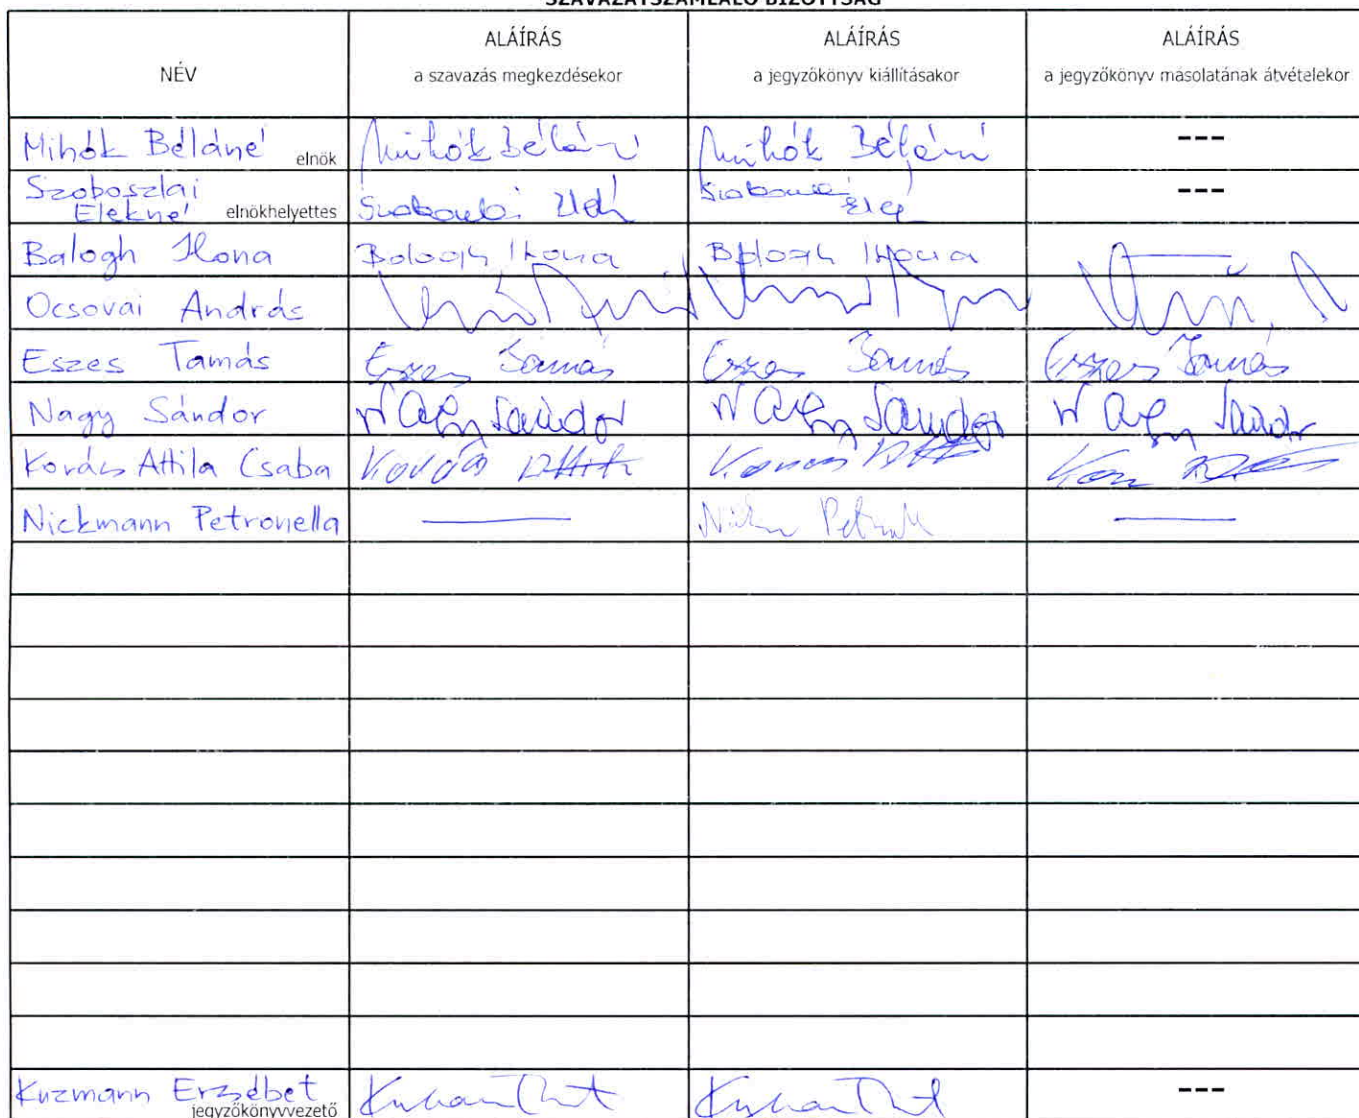 SZAVAZATSZÁMLÁLÓ BIZOTTSÁG
NÉV
ALÁÍRÁS
a szavazás megkezdésekor
ALÁÍRÁS
a jegyzőkönyv kiállításakor
ALÁÍRÁS
a jegyzőkönyv másolatának átvételekor
Mihók Béláné elnök Mihók Béláné Mihók Béláné ---
Szoboszlai
Elekné elnökhelyettes ---
Balogh Ilona Balogh Ilona Balogh Ilona
Ocsovai András
Eszes Tamás Eszes Tamás Eszes Tamás Eszes Tamás
Nagy Sándor Nagy Sándor Nagy Sándor Nagy Sándor
Kovács Attila Csaba Kovács Attila Kovács
Nickmann Petronella
Kuzmann Erzsébet
jegyzőkönyvvezető ---